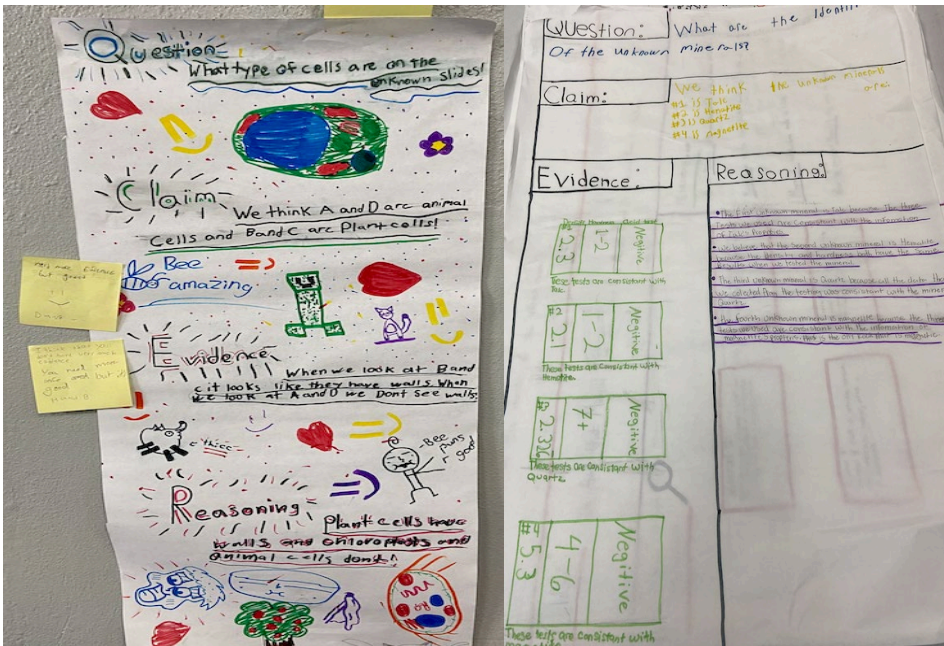 Question
What type of cells are on the
unknown slides!
Claim
We think A and D are animal
Cells and B and C are Plant cells!
Bee
amazing
need more Evidence
but great
Evidence
When we look at B and
C it looks like they have walls. When
we look at A and D we Dont See walls.
You need more
good
Bee
Puns
r
good
Reasoning
Plant cells have
walls and chloroplasts and
animal cells dont!
Question:
What are the
Of the unknown minerals?
Claim:
We think the unknown minerals
are:
#1 is Talc
#2 is Hematite
#3 is Quartz
#4 is magnetite
Evidence:
Density Hardness Acid test
2.3
1-2
Negitive
These tests are consistent with
Talc
#2
1-2
Negitive
These tests are consistant with
Hematite
7+
Negitive
These tests are consistant with
quartz.
#4
5.3
4-6
Negitive
These tests are consistant with
Reasoning:
The first unknown mineral is talc because The three
tests we used are consistant with the information
of talc's
we believe that the Second unknown mineral is Hematite
because the
when we tested the mineral
The third unknown mineral is Quartz because all the data that
we collected from the testing was consistant with the mineral
Quartz.
The fourth unknown mineral is magnetite because the three
tests we used are consistant with the information of
that is magnetic.